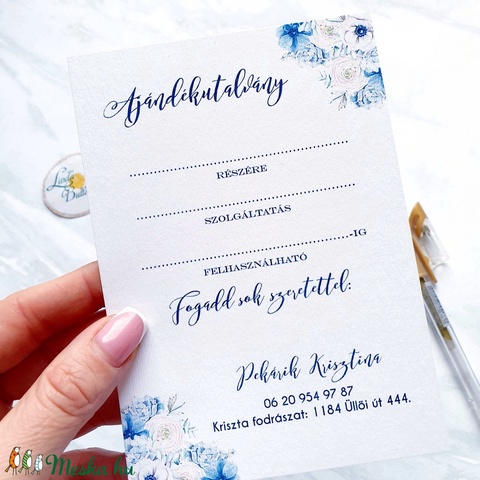 Ajándékutalvány
RÉSZÉRE
SZOLGÁLTATÁS
-IG
FELHASZNÁLHATÓ
Fogadd sok szeretettel:
Pekárik Krisztina
06 20 954 97 87
Kriszta fodrászat: 1184 Üllői út 444.
Meska.hu